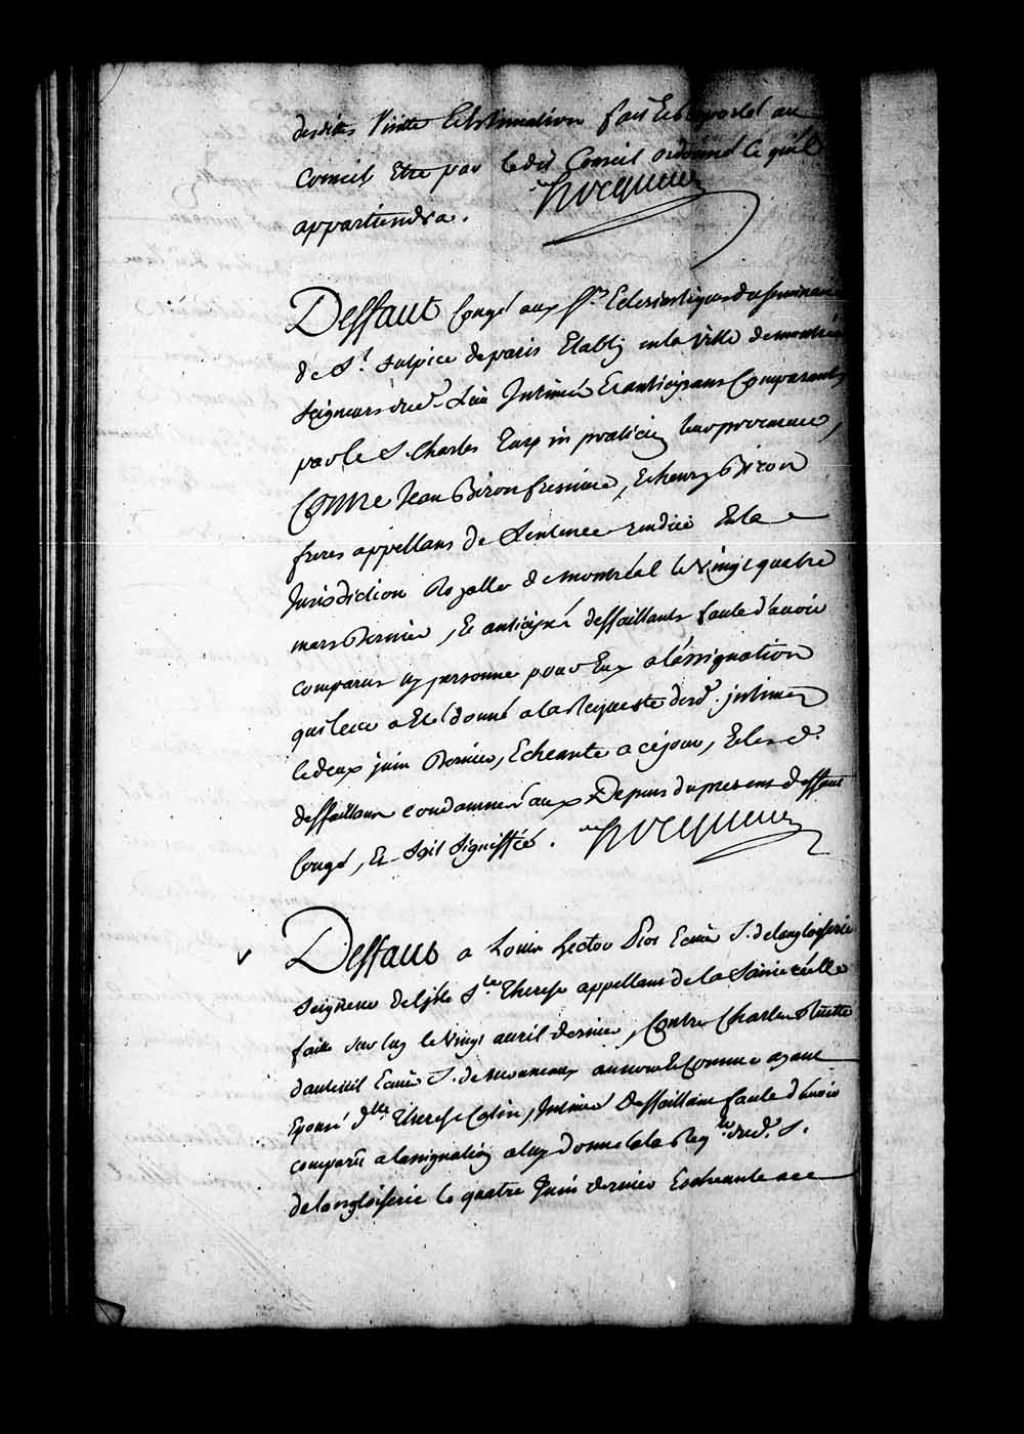 desdites Visitte Et Estimation fait Et raporté au
Conseil Etre par Ledit Conseil ordonné Ce qu'il
appartiendra. hocquart
Deffaut Congé aux Srs Eclesiastiques du seminaire
de St. Sulpice de paris Etably en la Ville de montréal
Seigneurs dud. Lieu Intimés Et anticipans Comparants
par le S. Charles Turpin praticien leur procureur,
Contre Jean Biron fresniere, Et henry Biron
freres appellans de Sentence rendüe En la
Jurisdiction Royalle de montréal le Vingt quatre
mars Dernier, Et anticipés deffaillants faute d'avoir
comparus ny personne pour Eux a l'assignation
qui leur a Eté donné a la Requeste desd. intimez
le deux juin Dernier, Echeante a ce jour, Et les d.
deffaillans condamnés aux Depens du present deffaut
Congé, Et Soit Signiffiée. hocquart
v Deffaus a Louis hector Piot Ecuier S. de langloiserie
Seigneur de l'isle Ste Therese appellant de la Saisie réelle
faite sur luy le Vingt avril dernier, Contre Charles Ruette
d'auteuil Ecuier S. de monceaux au nom Et Comme ayant
Epousé dlle Therese Catin, Intimé Deffaillant faute d'avoir
comparu a l'assignation a luy donnée a la Reqte dud. S.
de langloiserie le quatre Juin dernier Echeante a ce